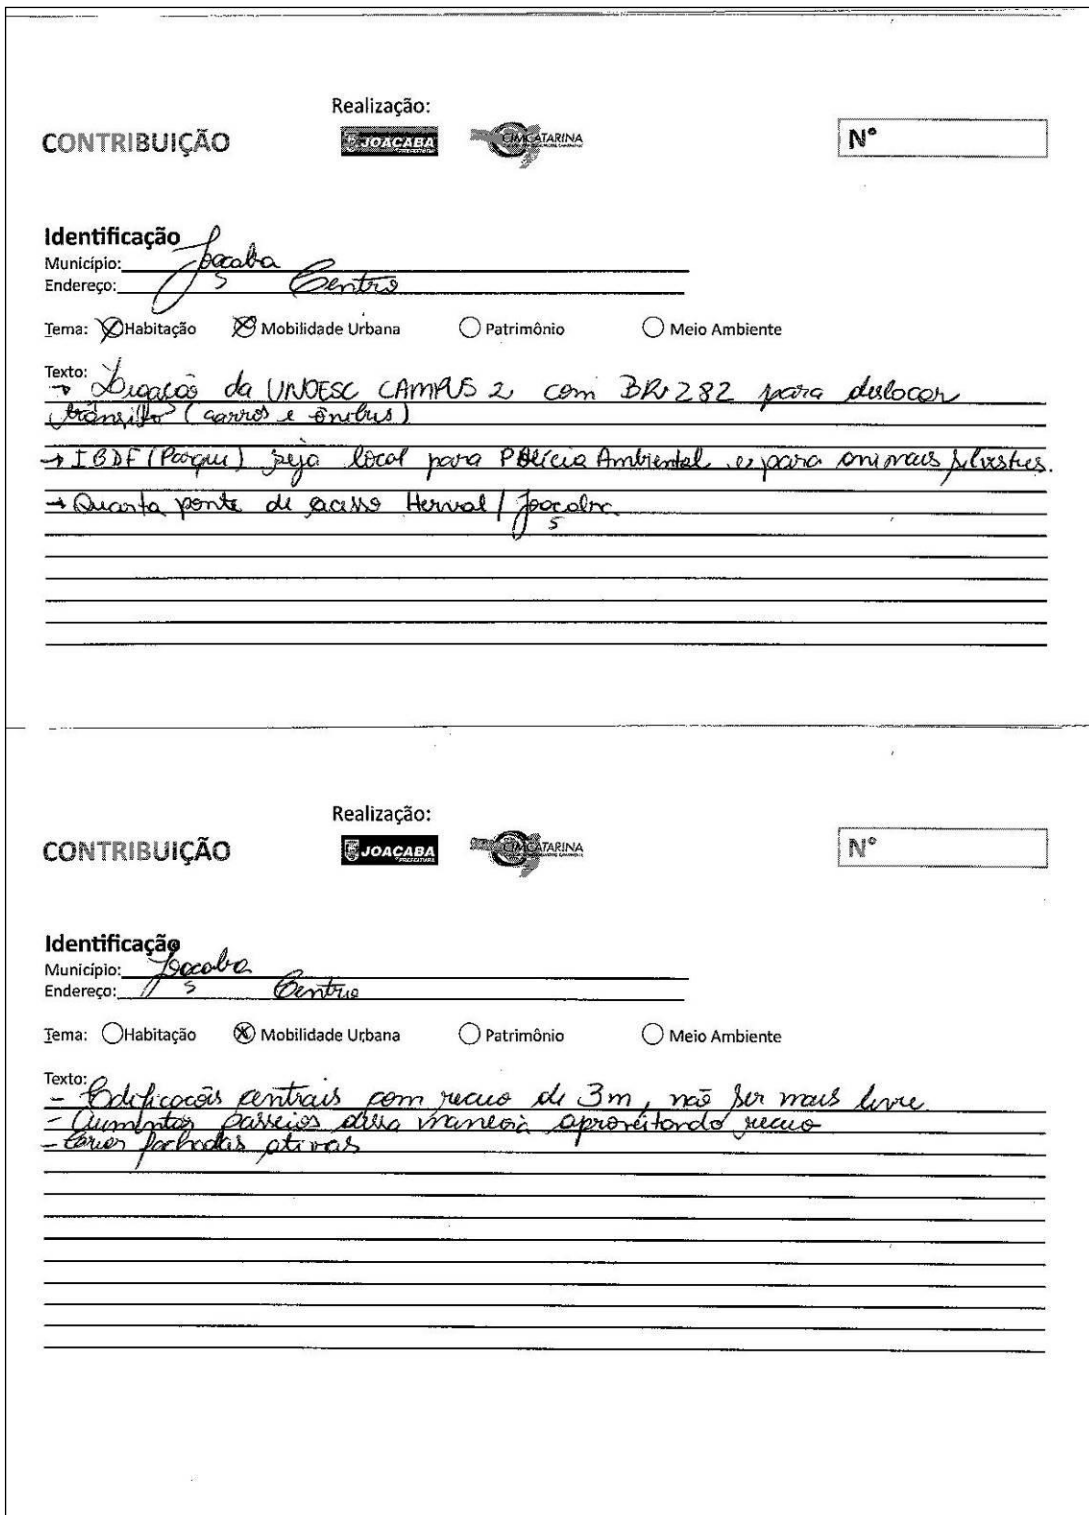 Realização:
CONTRIBUIÇÃO
JOAÇABA
PREFEITURA
CIMCATARINA
Nº
Identificação
Município: Joaçaba
Endereço: Centro
Tema: Habitação Mobilidade Urbana Patrimônio Meio Ambiente
Texto:
→ Ligação da UNOESC CAMPUS 2 com BR 282 para deslocar
trânsito (carros e ônibus)
→ IBDF (Parque) seja local para Polícia Ambiental e para animais silvestres.
→ Quarta ponte de acesso Herval / Joaçaba
Realização:
CONTRIBUIÇÃO
JOAÇABA
PREFEITURA
CIMCATARINA
Nº
Identificação
Município: Joaçaba
Endereço: Centro
Tema: Habitação Mobilidade Urbana Patrimônio Meio Ambiente
Texto:
- Edificações centrais com recuo de 3m, não ser mais livre.
- Aumentar passeios dessa maneira aproveitando recuo
- fachadas ativas